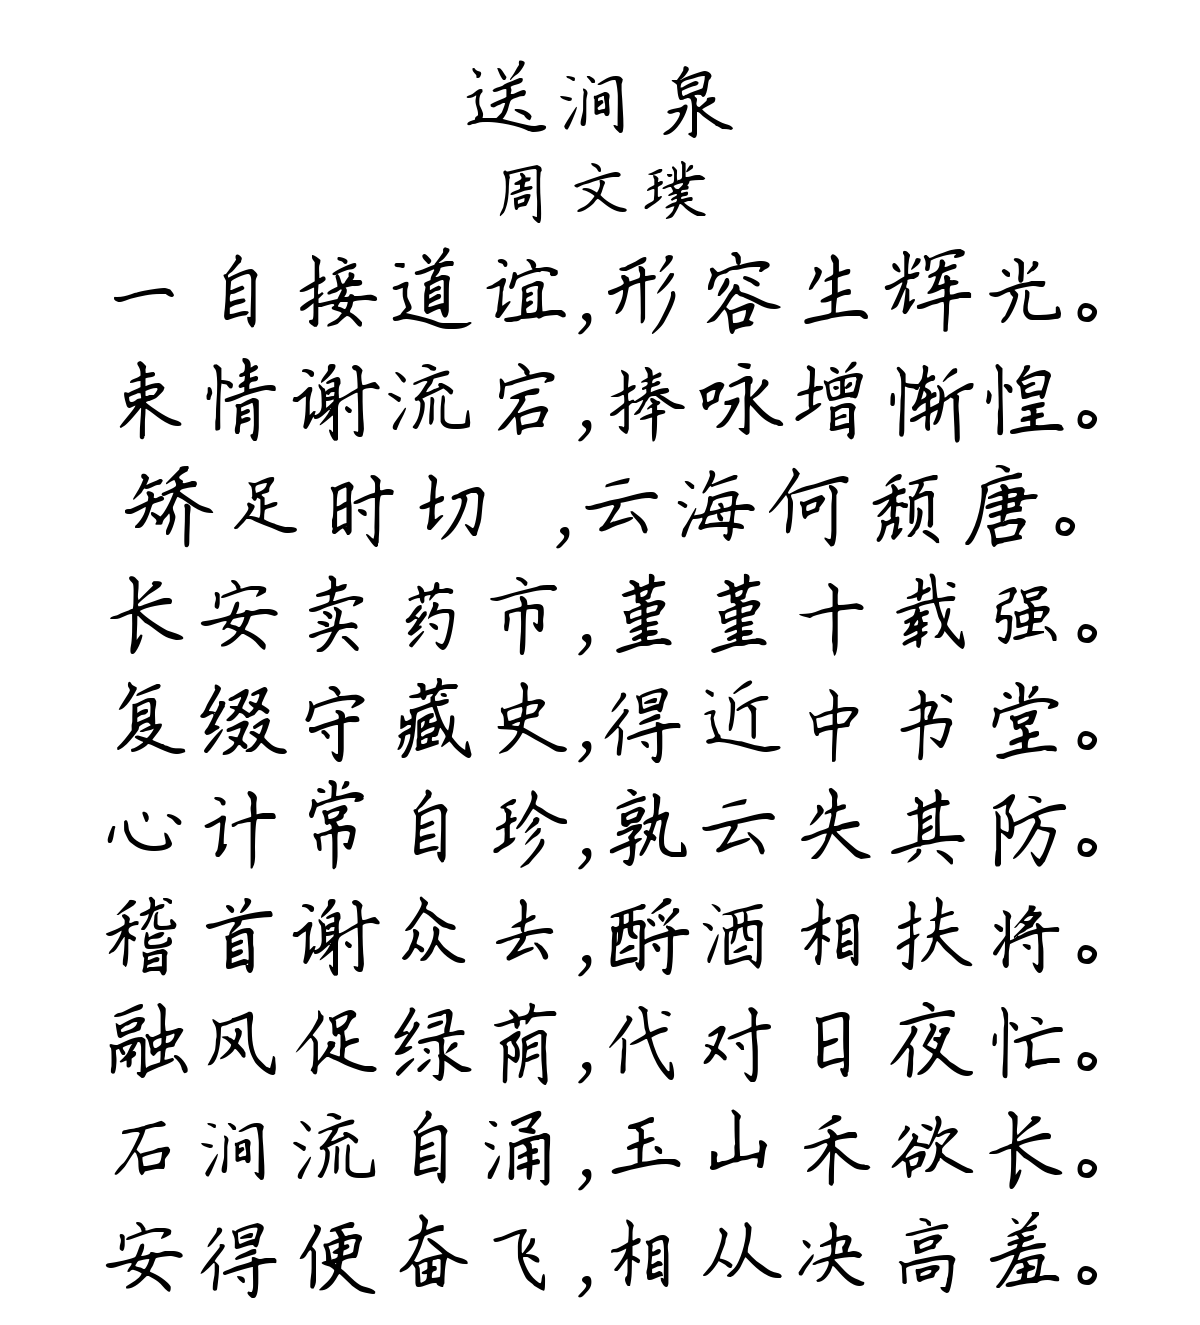 送涧泉
周文璞
一自接道谊,形容生辉光。
束情谢流宕,捧咏增惭惶。
矫足时切 ,云海何颓唐。
长安卖药市,堇堇十载强。
复缀守藏史,得近中书堂。
心计常自珍,孰云失其防。
稽首谢众去,酹酒相扶将。
融风促绿荫,代对日夜忙。
石涧流自涌,玉山禾欲长。
安得便奋飞,相从决高羞。